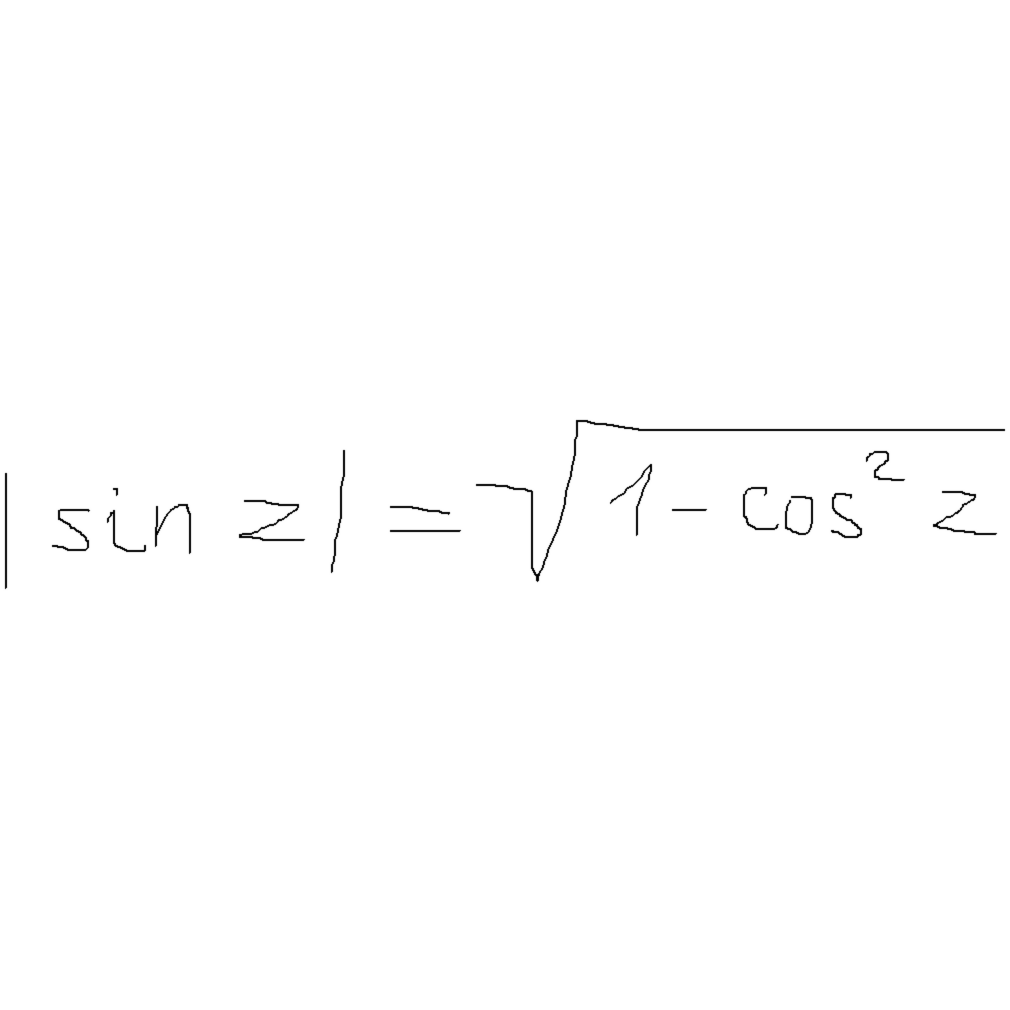 | sin z | = √(1 - cos² z)